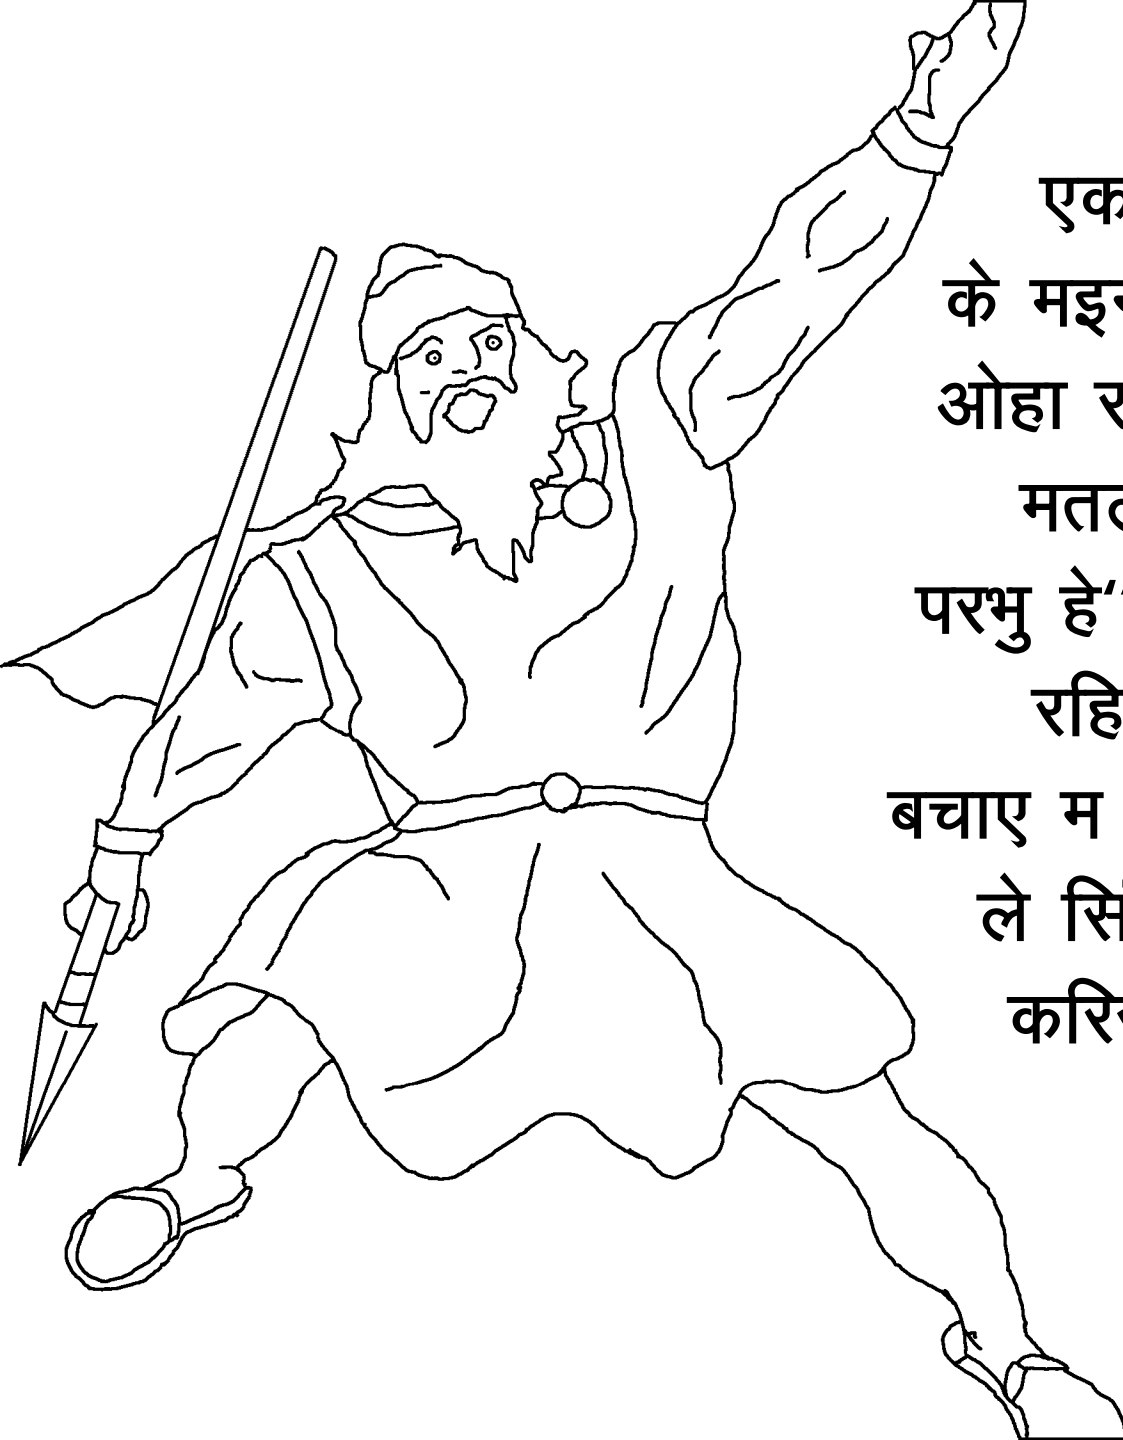 एक
के मइन
ओहा र
मतल
परभु हे“
रहि
बचाए म
ले सिं
करि